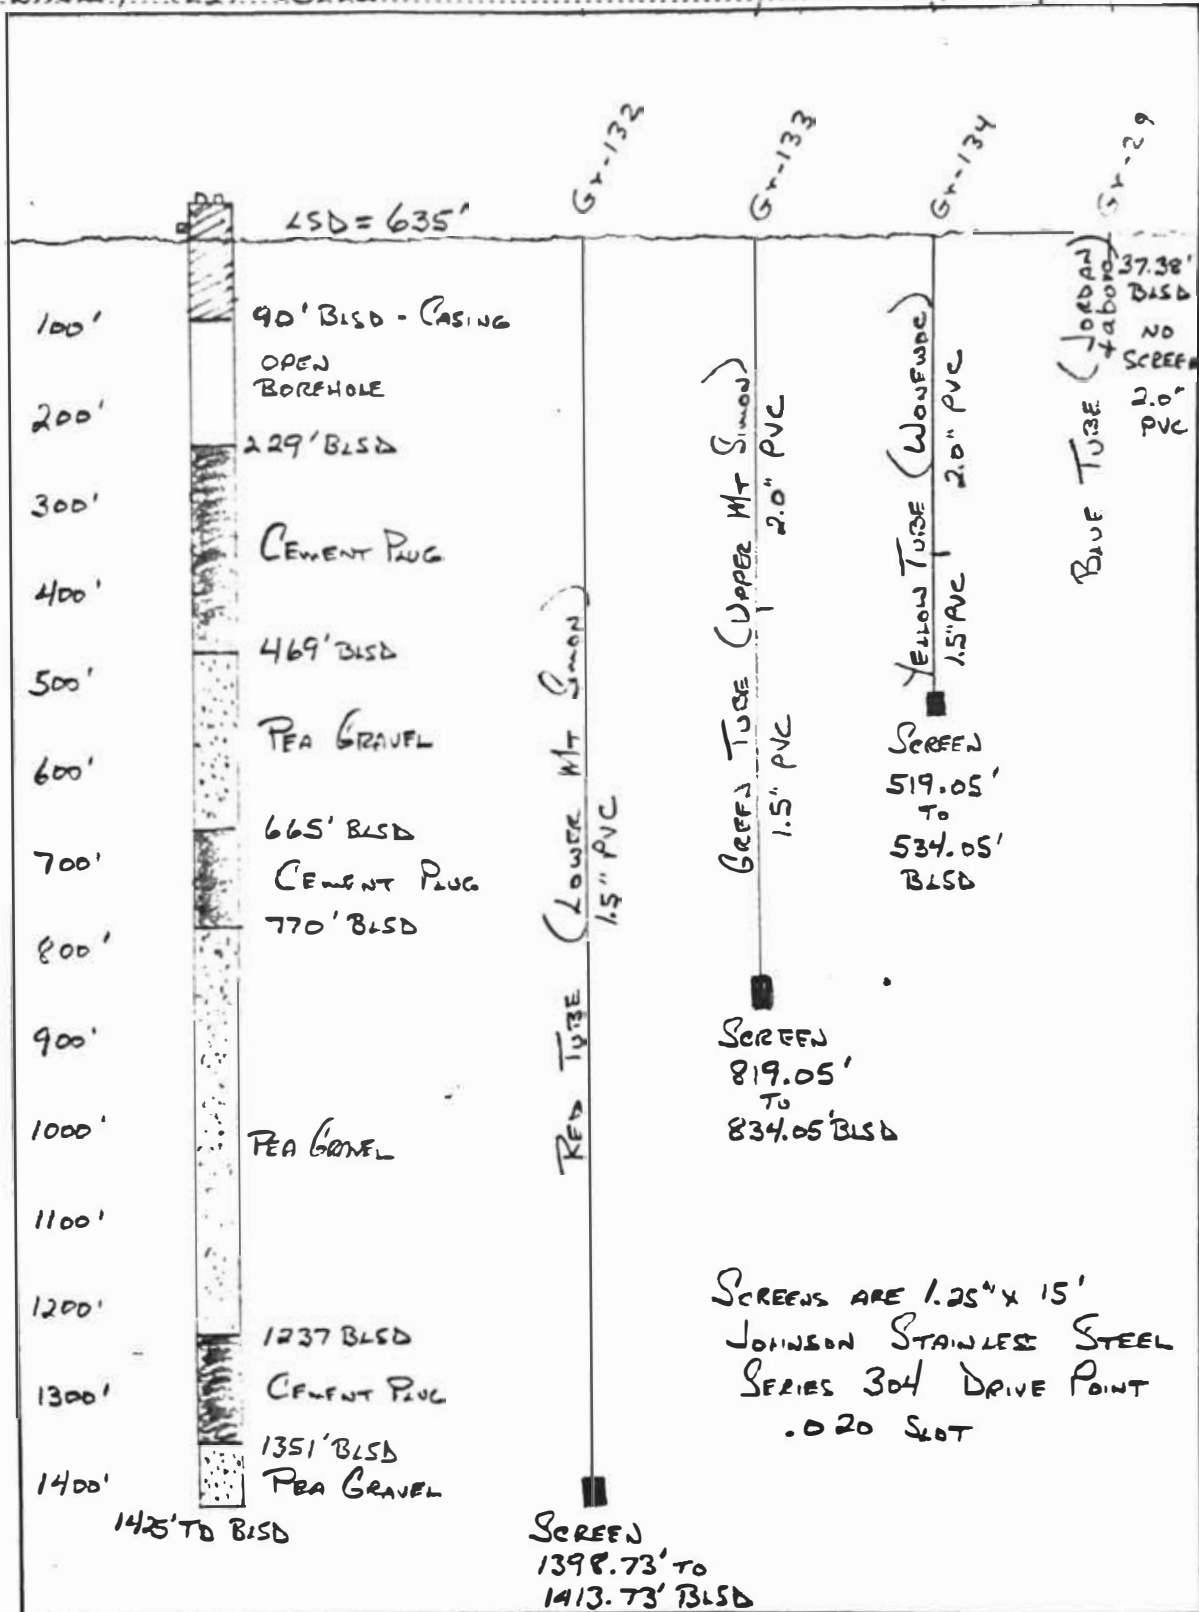 Gr-132
Gr-133
Gr-134
Gr-29
LSD = 635'
100'
200'
300'
400'
500'
600'
700'
800'
900'
1000'
1100'
1200'
1300'
1400'
90' BLSD - CASING
OPEN
BOREHOLE
229' BLSD
CEMENT PLUG
469' BLSD
PEA GRAVEL
665' BLSD
CEMENT PLUG
770' BLSD
PEA GRAVEL
1237 BLSD
CEMENT PLUG
1351' BLSD
PEA GRAVEL
1425' TD BLSD
RED TUBE (LOWER MT SIMON)
1.5" PVC
SCREEN
1398.73' TO
1413.73' BLSD
GREEN TUBE (UPPER MT SIMON)
1.5" PVC
2.0" PVC
SCREEN
819.05'
TO
834.05' BLSD
YELLOW TUBE (WONEWOC)
1.5" PVC
2.0" PVC
SCREEN
519.05'
TO
534.05'
BLSD
BLUE TUBE (JORDAN
+ above)
37.38'
BLSD
NO
SCREEN
2.0"
PVC
SCREENS ARE 1.25" x 15'
JOHNSON STAINLESS STEEL
SERIES 304 DRIVE POINT
.020 SLOT